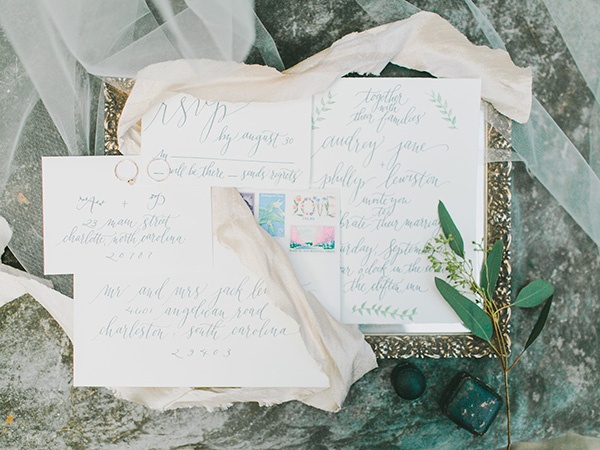 rsvp
by august 30
will be there — sends regrets
together
with
their families
audrey jane
+
philly lewiston
invite you
to
their marriage
september
o'clock in the
A + P
23 main street
charlotte, north carolina
20701
LOVE
mr and mrs jack
4001 angelican road
charleston, south carolina
29403